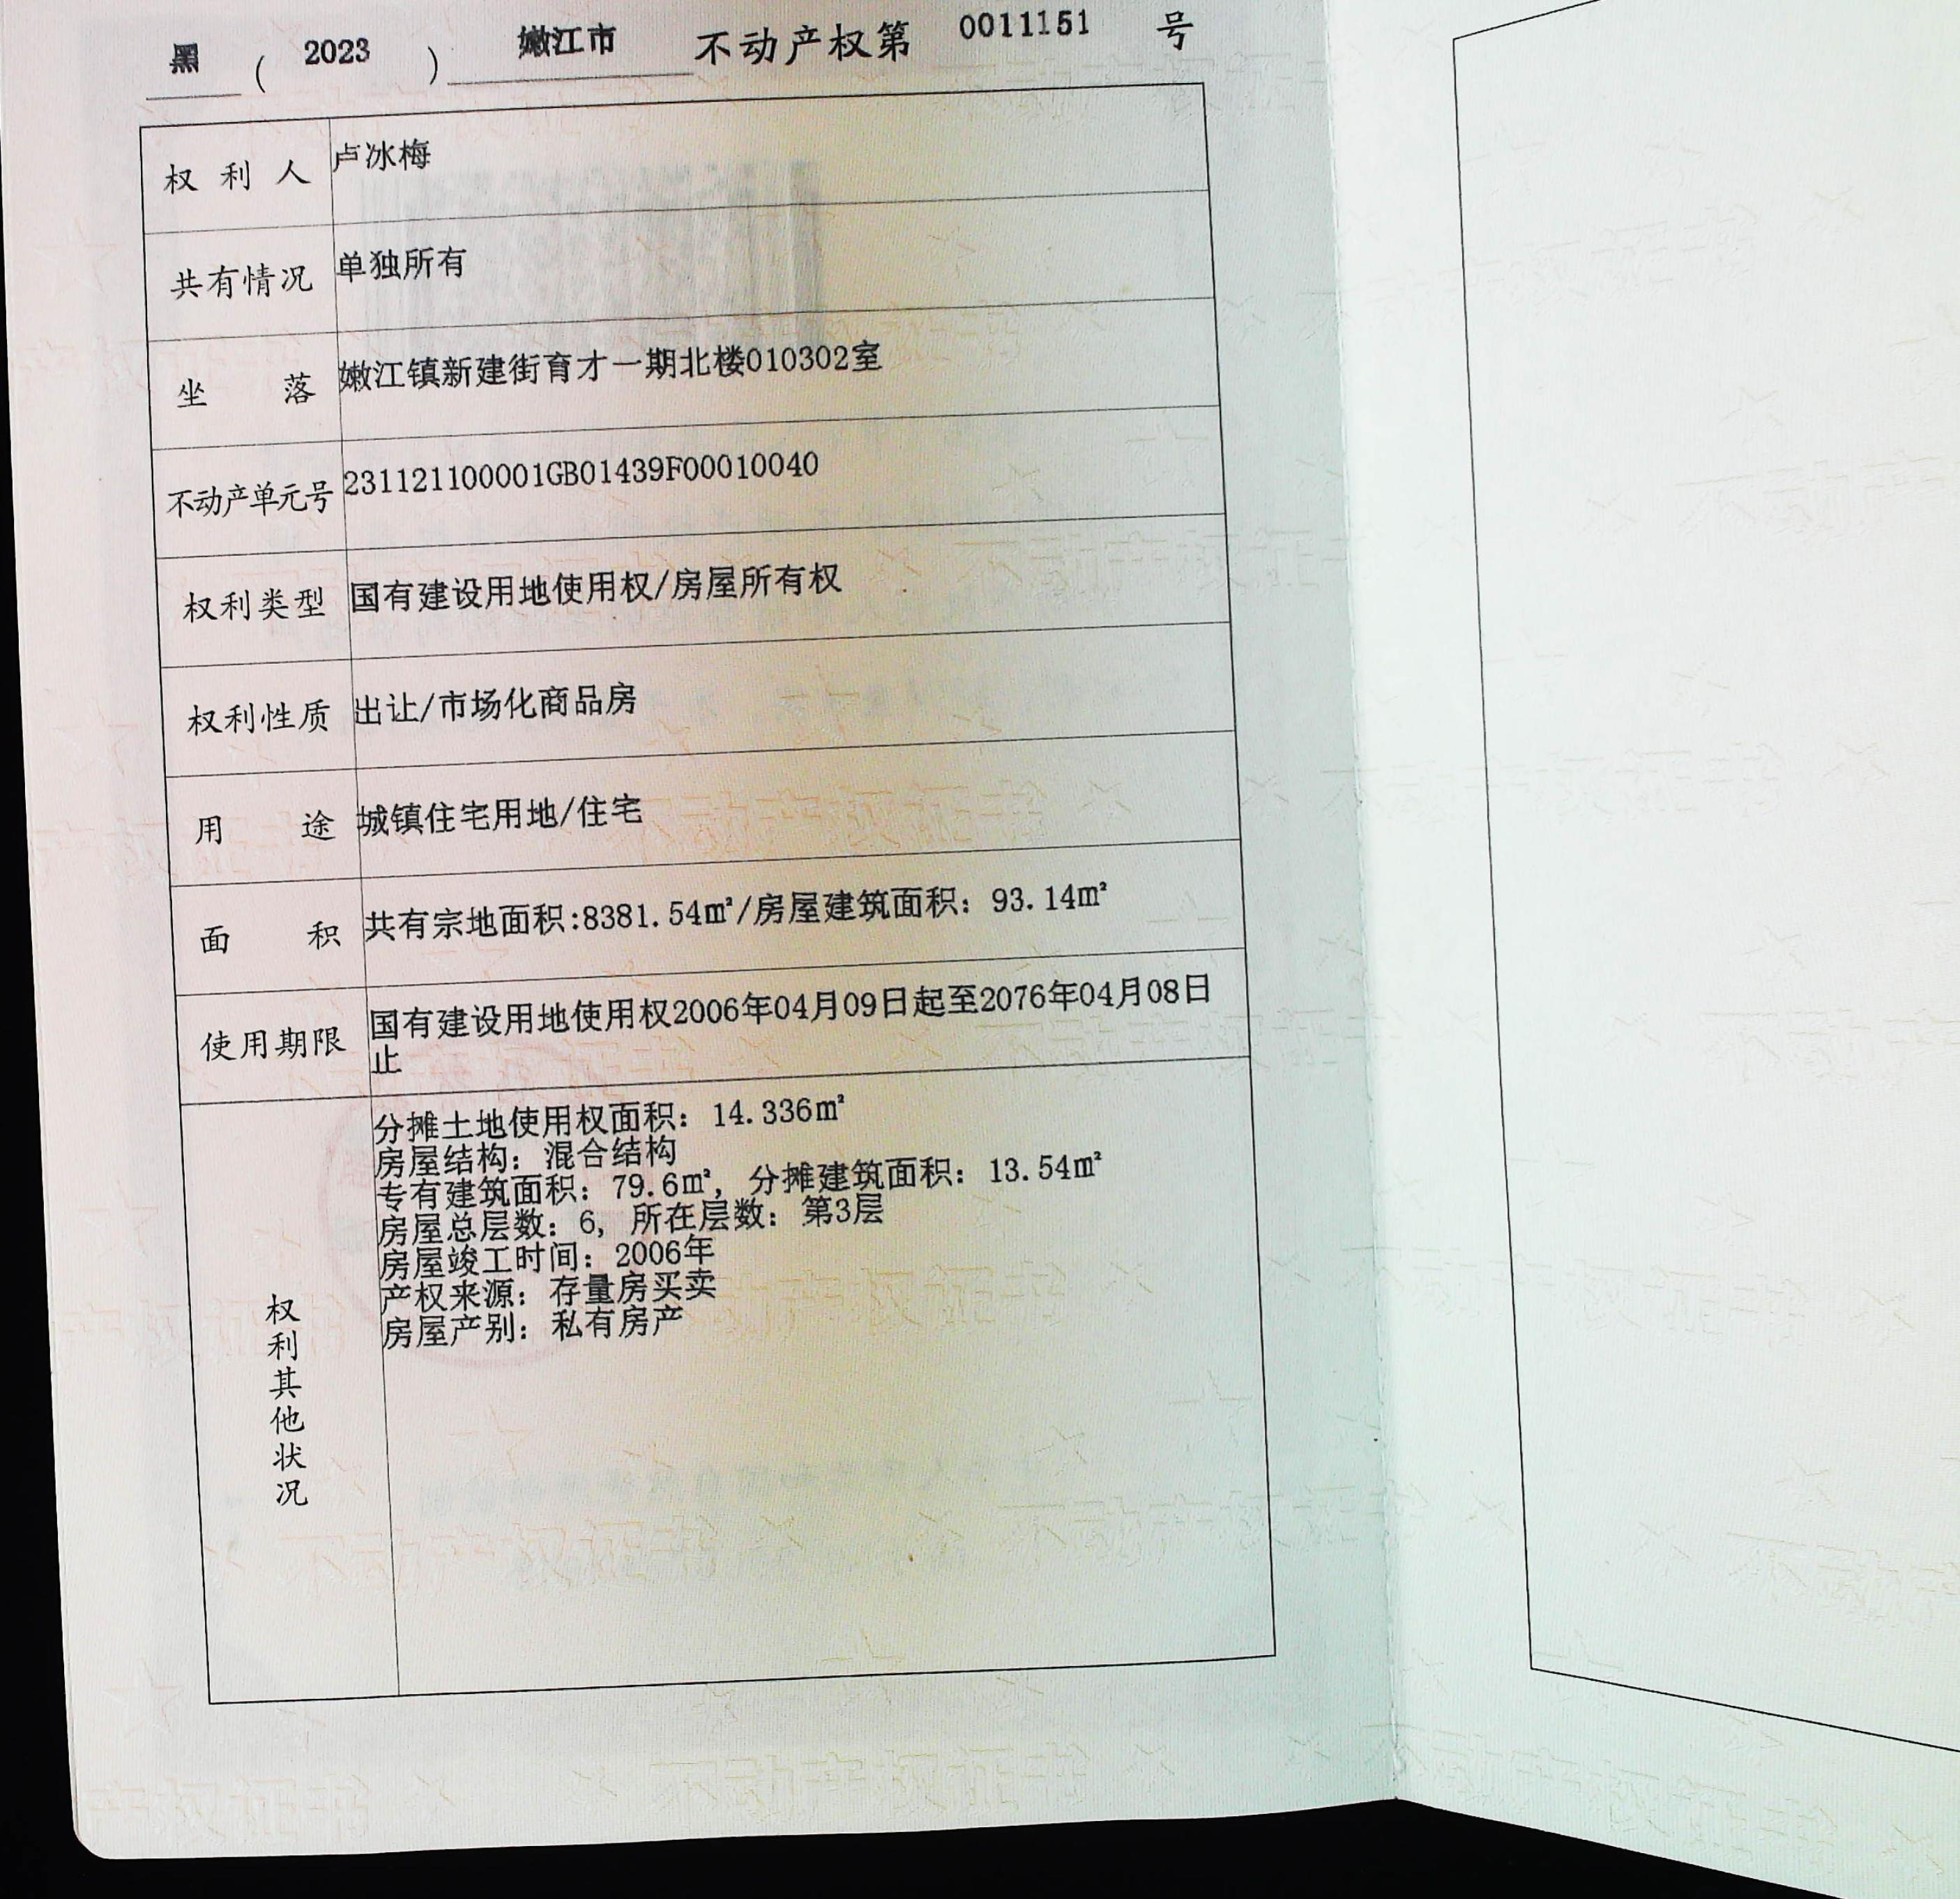 黑 ( 2023 ) 嫩江市 不动产权第 0011151 号
权利人 卢冰梅
共有情况 单独所有
坐落 嫩江镇新建街育才一期北楼010302室
不动产单元号 231121100001GB01439F00010040
权利类型 国有建设用地使用权/房屋所有权
权利性质 出让/市场化商品房
用途 城镇住宅用地/住宅
面积 共有宗地面积:8381.54㎡/房屋建筑面积：93.14㎡
使用期限 国有建设用地使用权2006年04月09日起至2076年04月08日
止
权利其他状况
分摊土地使用权面积：14.336㎡
房屋结构：混合结构
专有建筑面积：79.6㎡，分摊建筑面积：13.54㎡
房屋总层数：6，所在层数：第3层
房屋竣工时间：2006年
产权来源：存量房买卖
房屋产别：私有房产